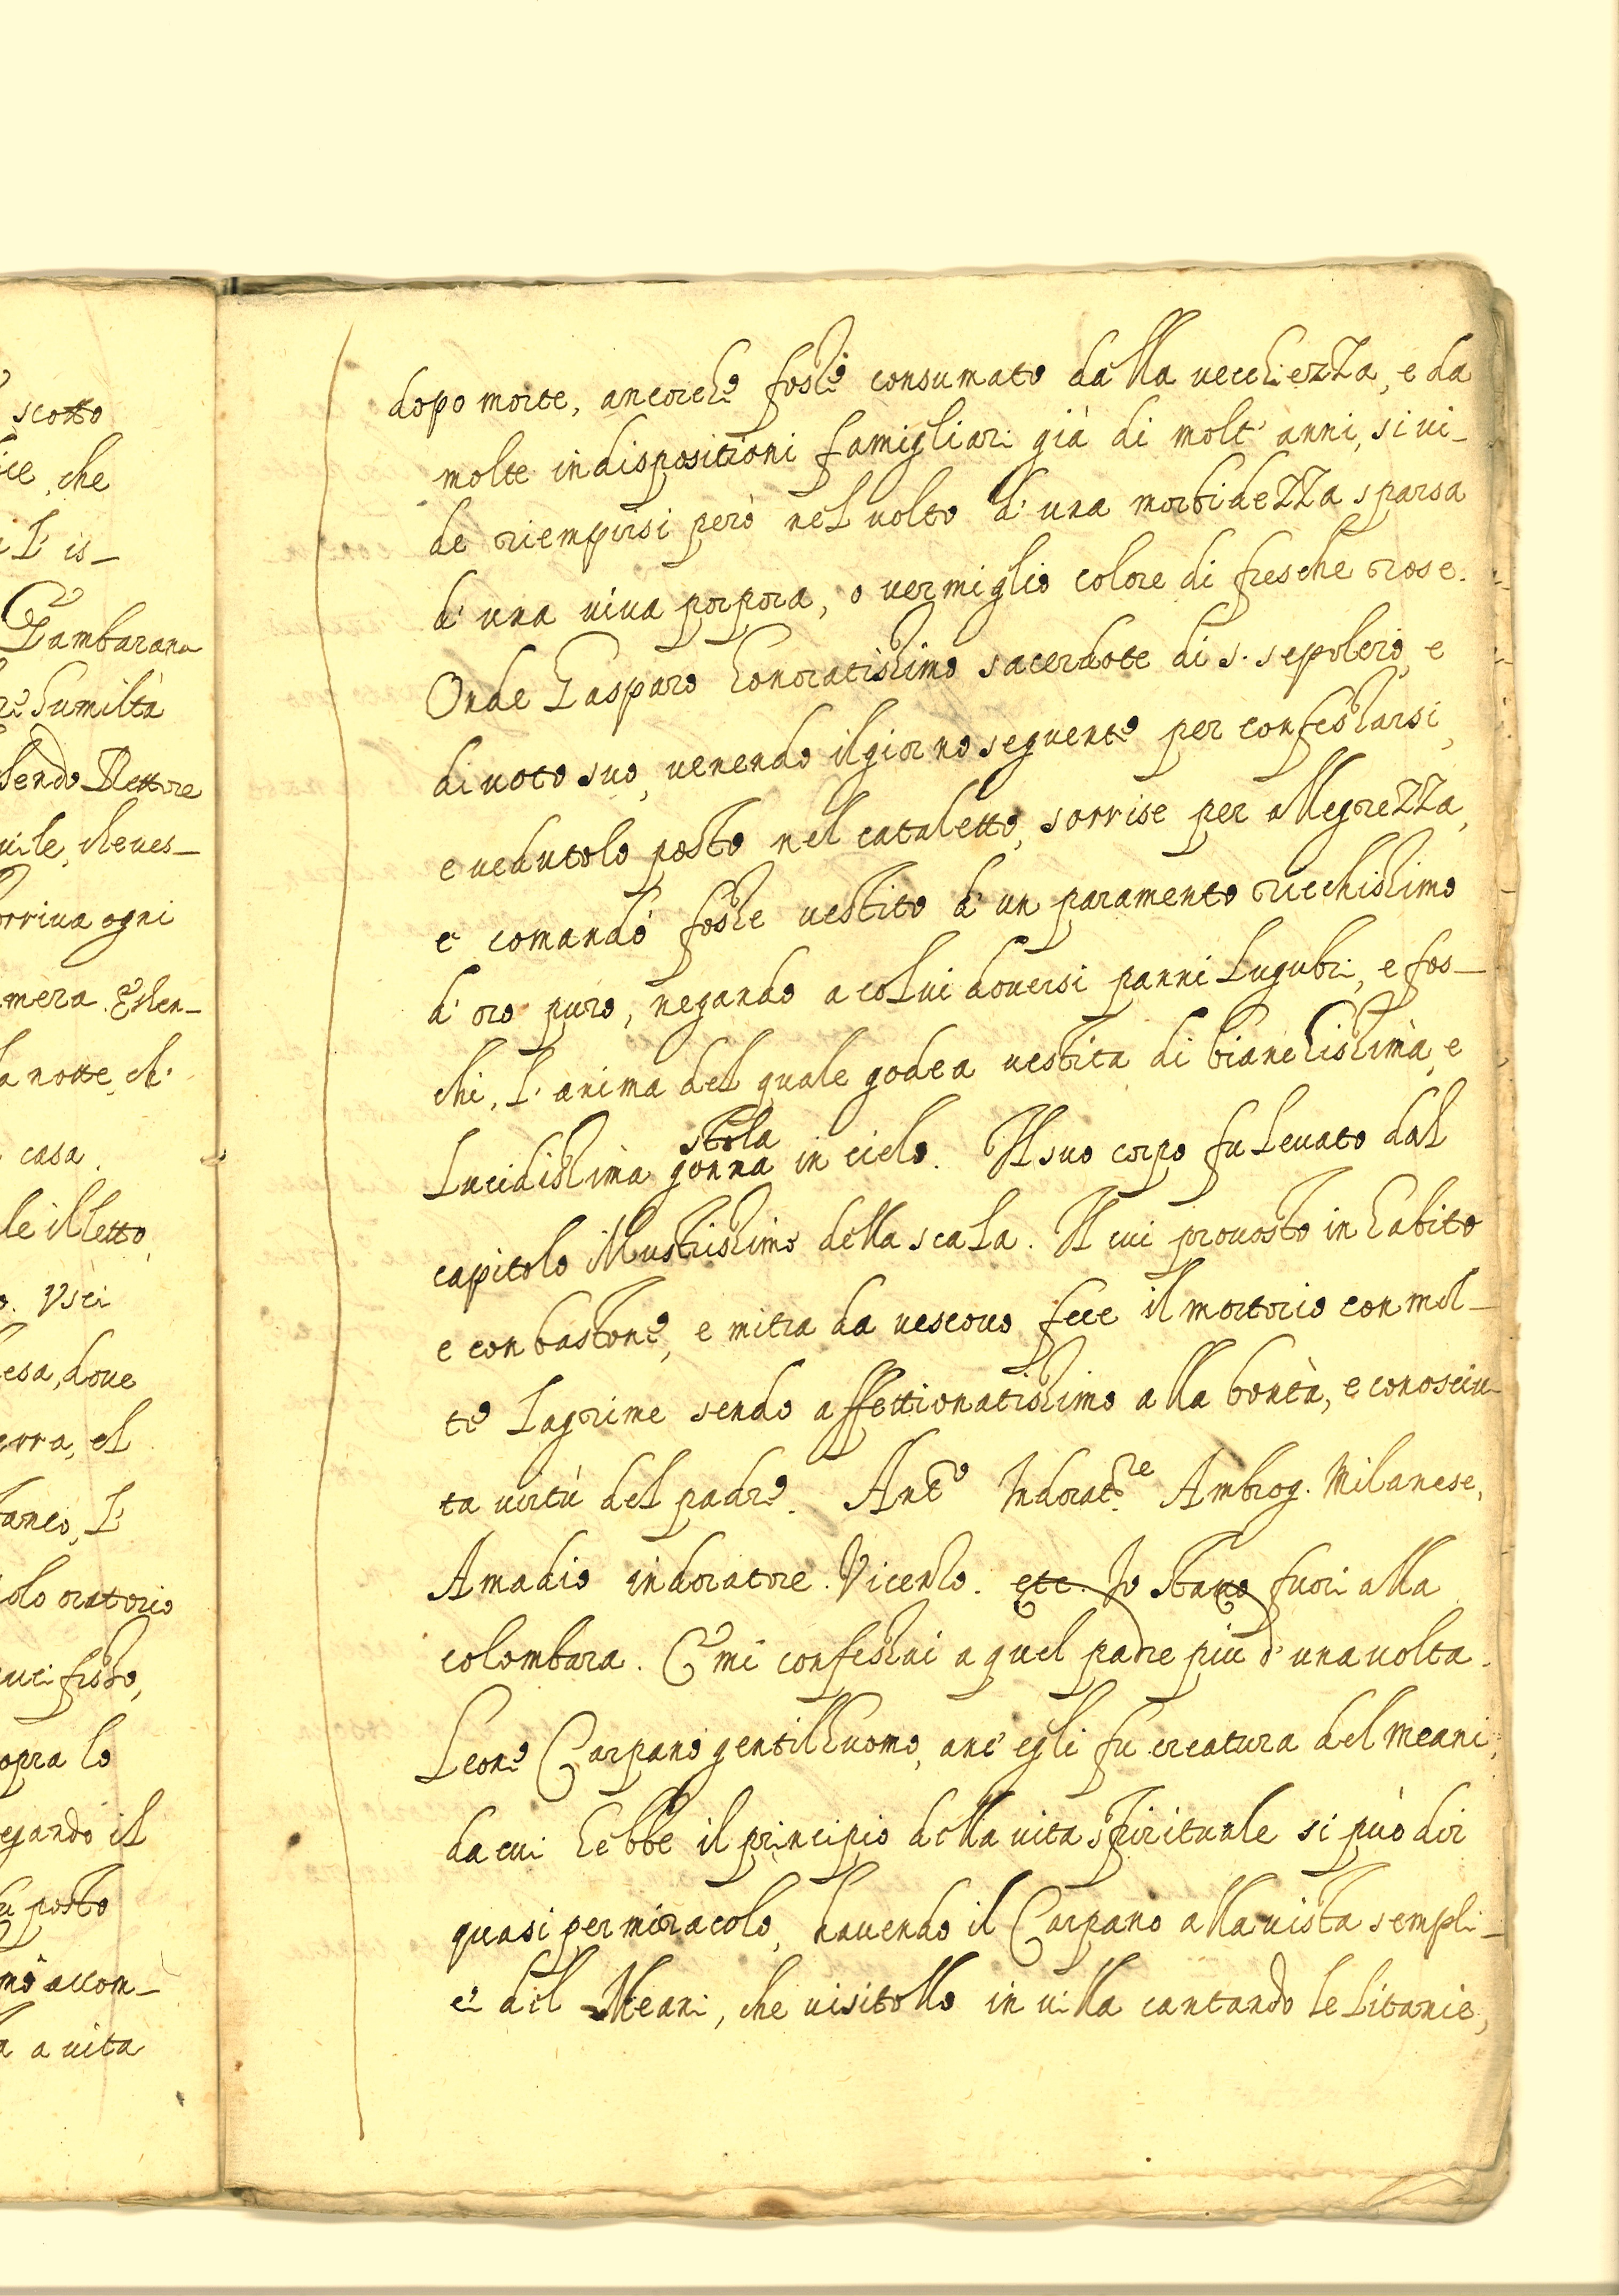 scotto
ice, che
i l' is-
Gambarana
re humiltà
sendo Rettore
uile, che ues-
orriua ogni
mera. Essen-
la notte, ch'
casa.
le il letto,
o. Vsci
esa, doue
erra, el
taneo, l'
olo oratorio
uci fisso,
opra lo
egando il
u posto
mò accom-
a a uita
dopo morte, ancorche fosse consumato dalla uecchiezza, e da
molte indispositioni famigliari già di molt' anni, si ui-
de riempirsi però nel uolto d' una morbidezza sparsa
d' una uiua porpora, o vermiglio colore di fresche rose.
Onde Gasparo honoratissimo sacerdote di s. sepolcro, e
diuoto suo, uenendo il giorno seguente per confessarsi,
e uedutolo posto nel cataletto, sorrise per allegrezza,
e comandò fosse uestito d' un paramento ricchissimo
d' oro puro, negando a colui douersi panni lugubri, e fos-
chi, l' anima del quale godea uestita di bianchissima, e
stola
lucidissima gonna in cielo. Il suo corpo fu leuato dal
capitolo Illustrissimo della scala. Il cui prouosto in habito
e con bastone, e mitra da uescouo fece il mortorio con mol-
te lagrime sendo affettionatissimo alla bontà, e conosciu-
ta uirtù del padre. Anto Indoratre Ambrog. Milanese,
Amadio indoratore. Vicenzo. etc. Io stauo fuori alla
colombara. E mi confessai a quel padre più d' una uolta.
Leone Carpano gentilhuomo, anc' egli fu creatura del Meani,
da cui hebbe il principio della uita spirituale si può dir
quasi per miracolo, hauendo il Carpano alla uista sempli-
ce del Meani, che uisitollo in uilla cantando le litanie,